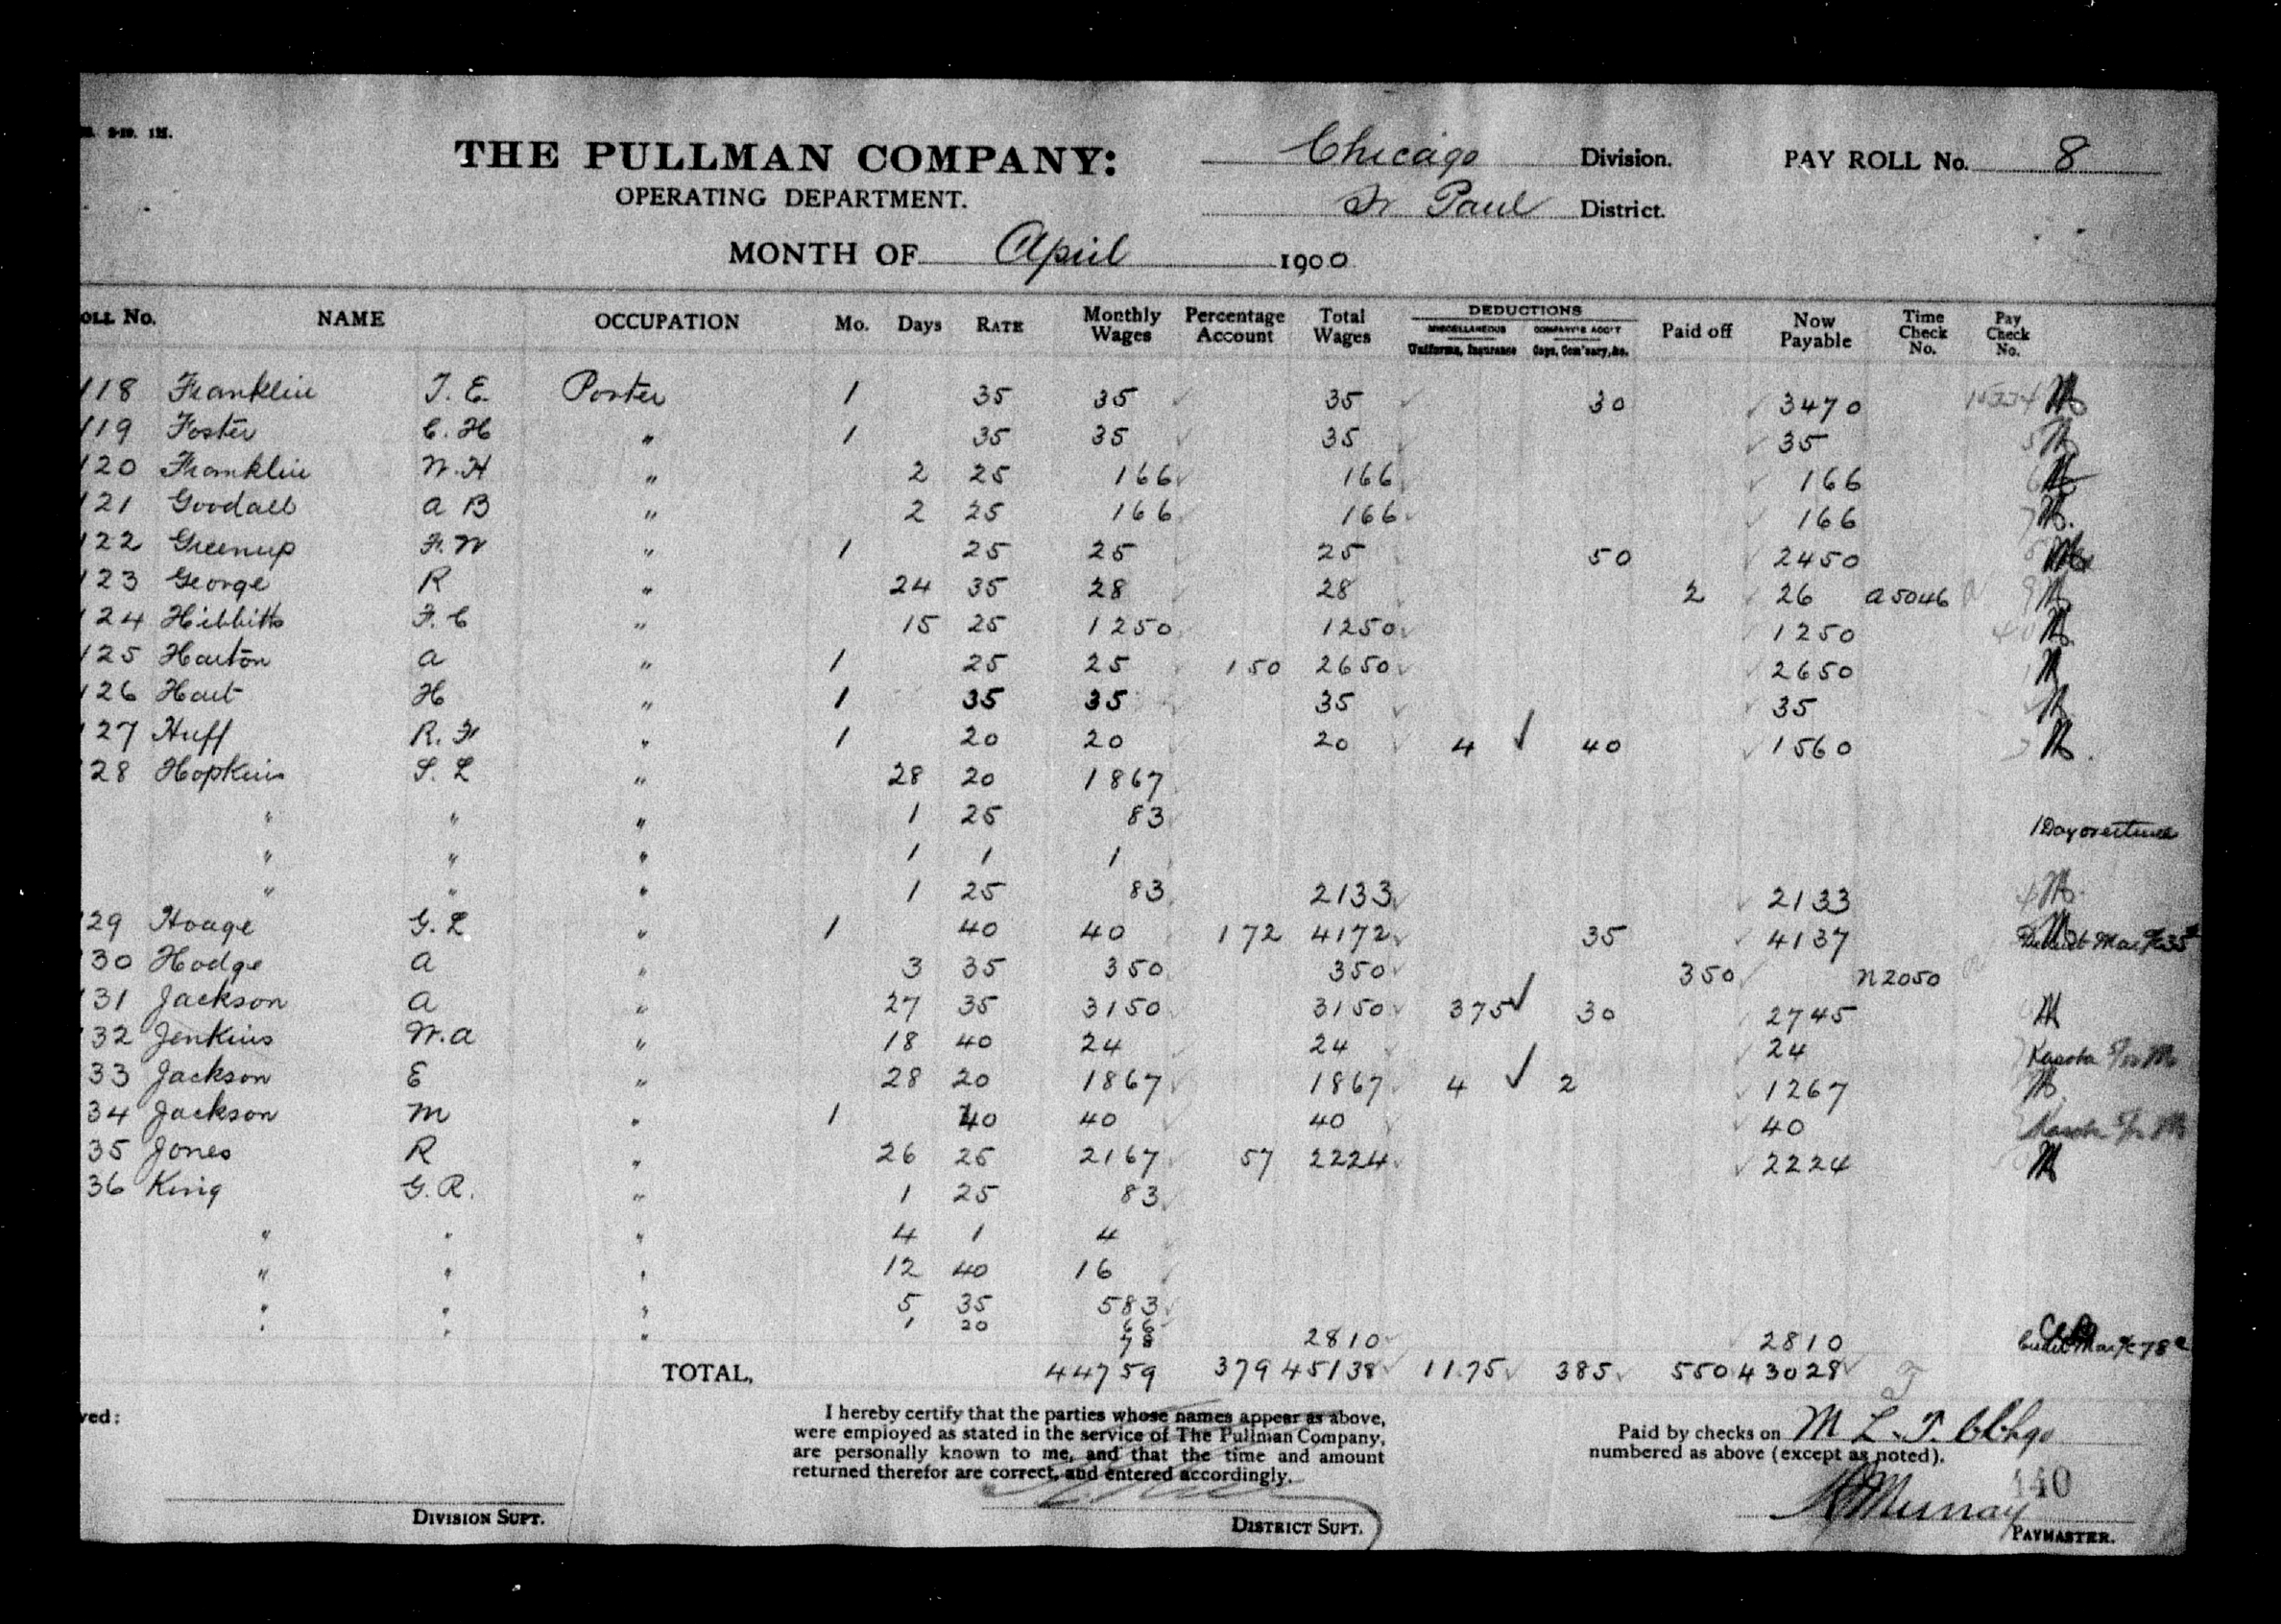 9-19. 1M.
THE PULLMAN COMPANY: Chicago Division. PAY ROLL No. 8
OPERATING DEPARTMENT. St Paul District.
MONTH OF April 1900
OLL No. NAME OCCUPATION Mo. Days RATE Monthly Wages Percentage Account Total Wages DEDUCTIONS MISCELLANEOUS Uniforms, Insurance COMPANY'S ACC'T Caps, Com'sary, &c. Paid off Now Payable Time Check No. Pay Check No.
118 Franklin T. E. Porter 1 35 35 35 30 3470 15334
119 Foster C. H " 1 35 35 35 35 5
120 Franklin W. H " 2 25 166 166 166 6
121 Goodall A B " 2 25 166 166 166 7
122 Greenup F. W " 1 25 25 25 50 2450
123 George R " 24 35 28 28 2 26 A5046 9
124 Hibbitts F. C " 15 25 1250 1250 1250 40
125 Harton A " 1 25 25 150 2650 2650
126 Hart H " 1 35 35 35 35
127 Huff R. F " 1 20 20 20 4 ✓ 40 1560
28 Hopkins S. L " 28 20 1867
" " " 1 25 83 1 Day overtime
" " " 1 1 1
" " " 1 25 83 2133 2133 4
29 Hoage G. L " 1 40 40 172 4172 35 4137
30 Hodge A " 3 35 350 350 350 N2050
31 Jackson A " 27 35 3150 3150 375 ✓ 30 2745
32 Jenkins W. A " 18 40 24 24 24 Kasota
33 Jackson E " 28 20 1867 1867 4 ✓ 2 1267
34 Jackson M " 1 40 40 40 40
35 Jones R " 26 25 2167 57 2224 2224
36 King G. R. " 1 25 83
" " " 4 1 4
" " " 12 40 16
" " " 5 35 583
" " " 1 20 66
" 78 2810 2810
TOTAL, 44759 379 45138 11.75 385 550 43028
ved:
I hereby certify that the parties whose names appear as above,
were employed as stated in the service of The Pullman Company,
are personally known to me, and that the time and amount
returned therefor are correct, and entered accordingly.
Paid by checks on M L. T. Chgo
numbered as above (except as noted).
140
Murray
DIVISION SUPT. DISTRICT SUPT. PAYMASTER.